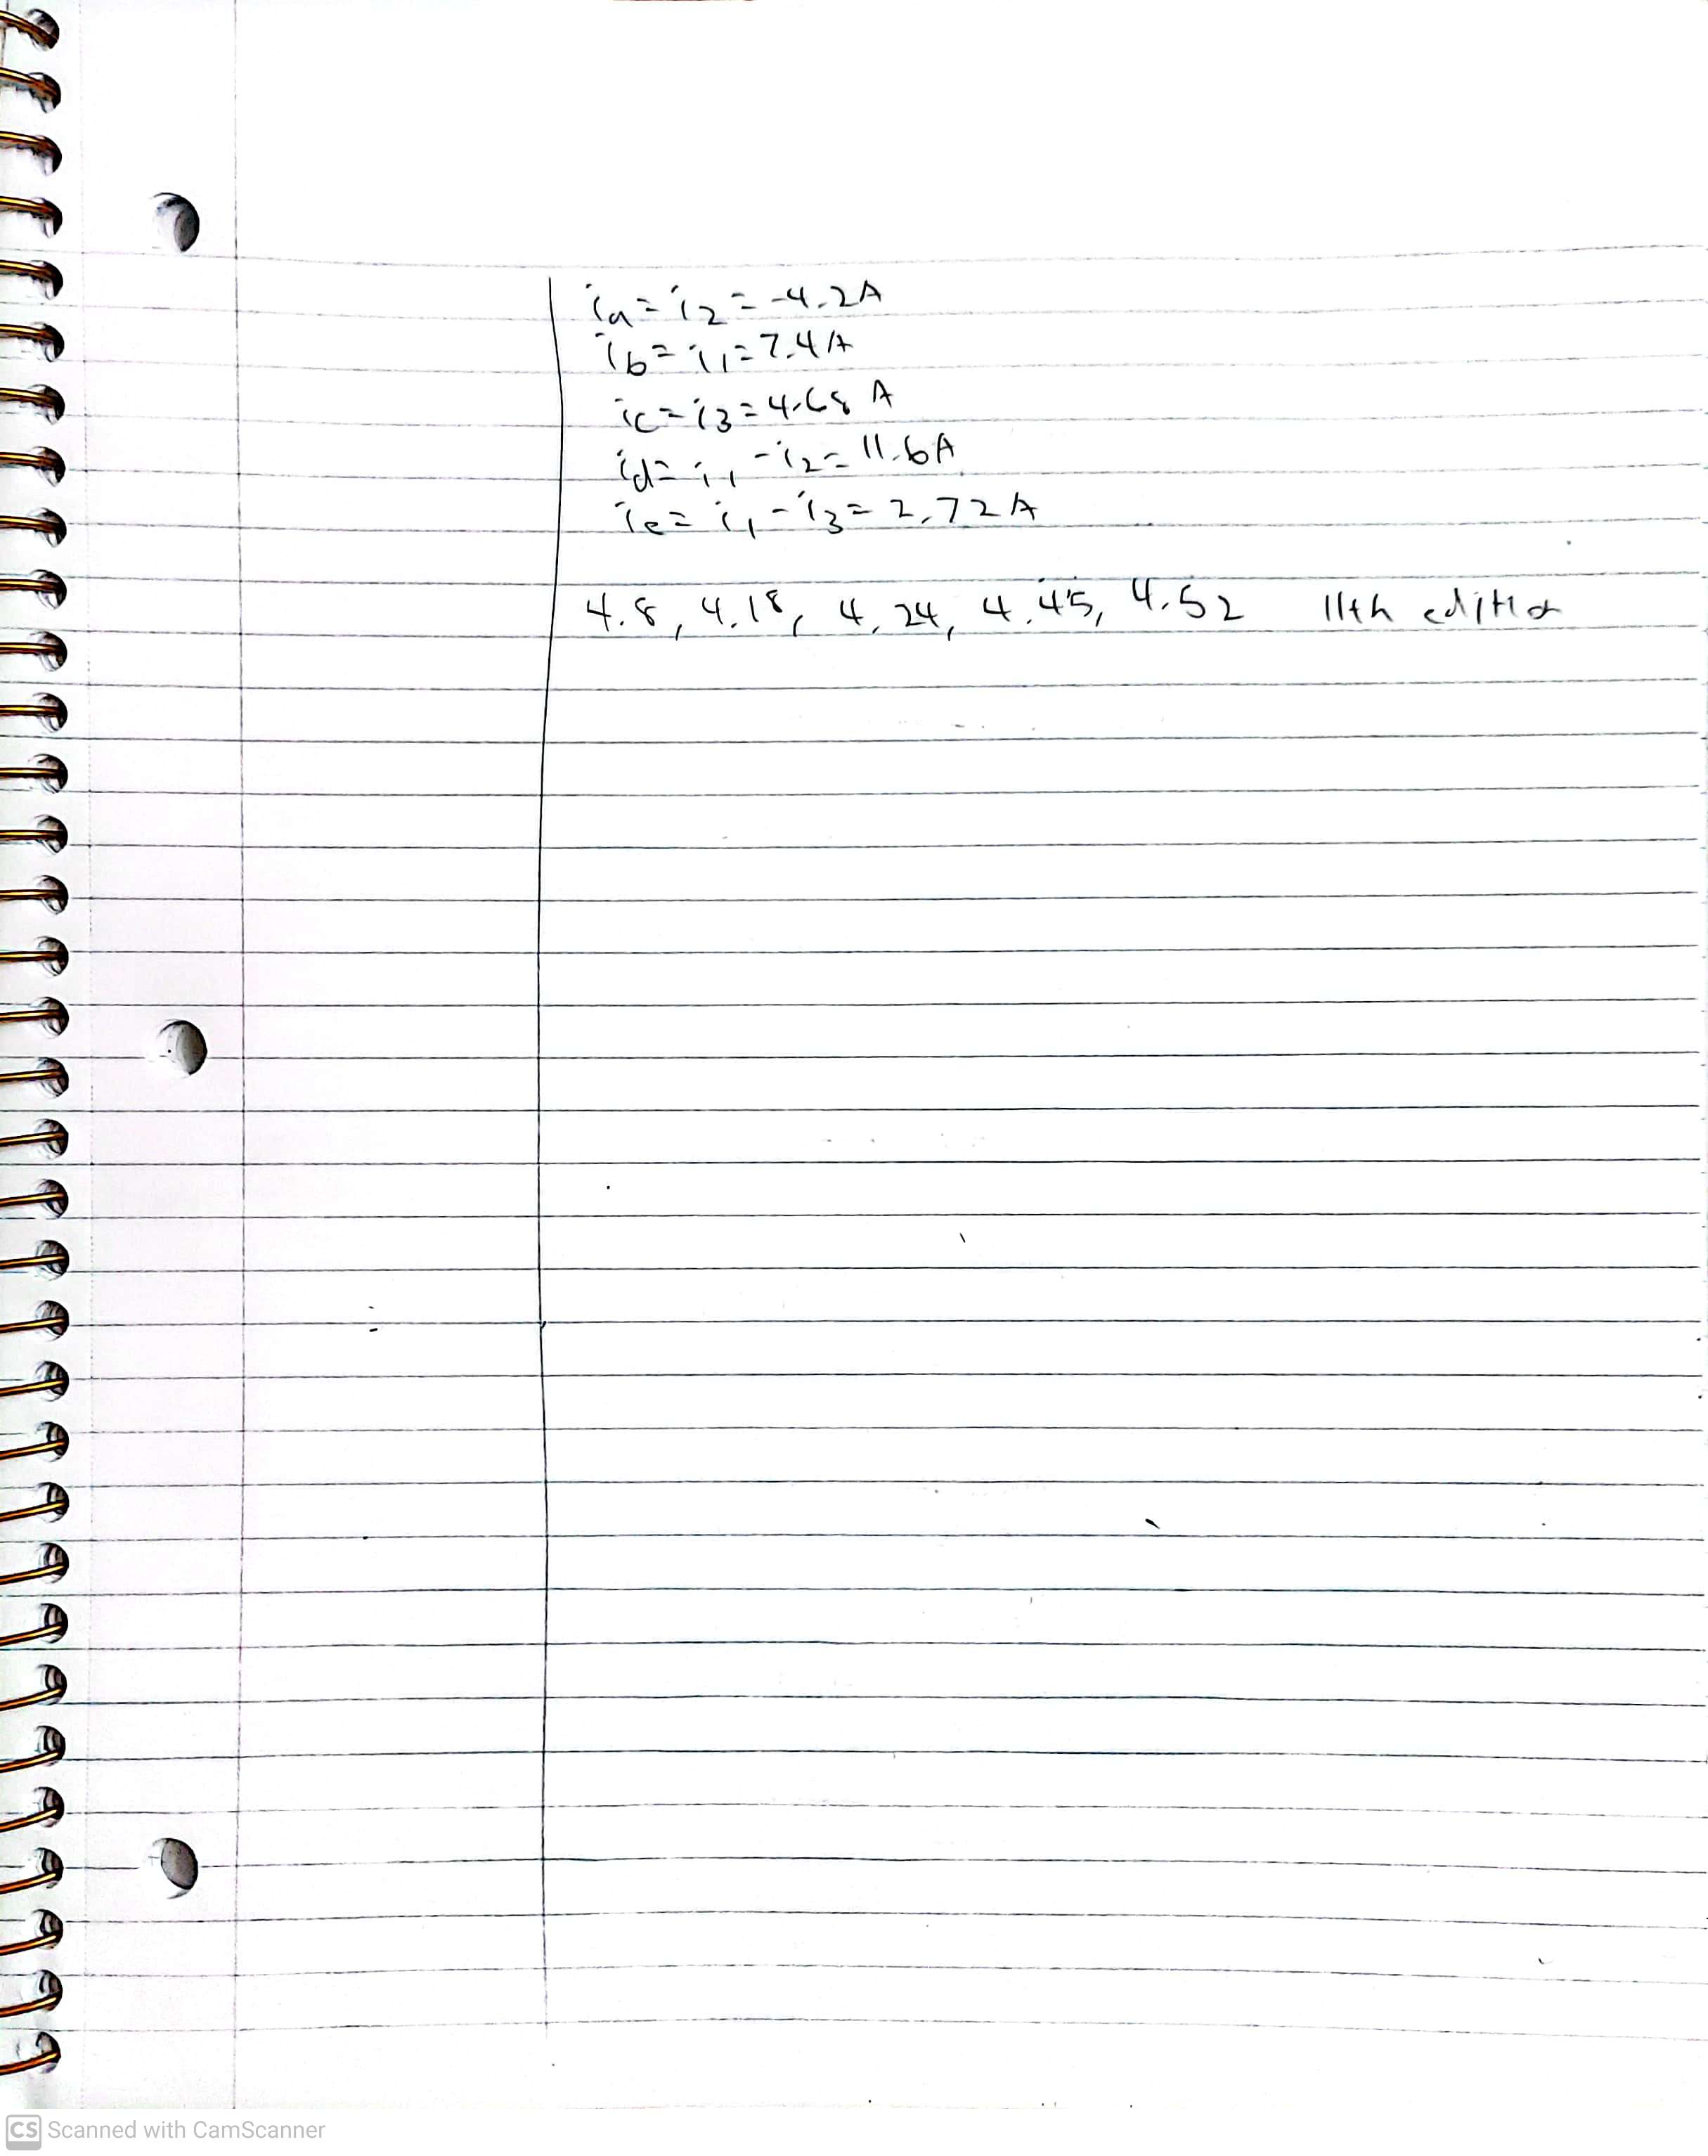 ia = i2 = -4.2A
ib = i1 = 7.4A
ic = i3 = 4.68 A
id = i1 - i2 = 11.6A
ie = i1 - i3 = 2.72A
4.8, 4.18, 4.24, 4.45, 4.52 11th edition
CS Scanned with CamScanner